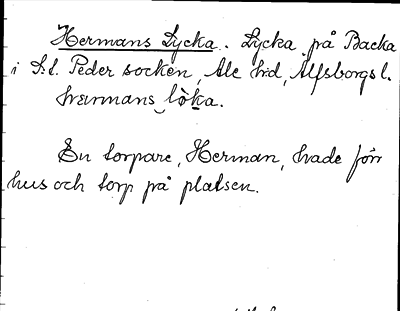 Hermans Lycka. Lycka på Backa
i S:t. Peder socken, Ale hd, Älfsborgs l.
hærmans lò̀ka.
En torpare, Herman, hade förr
hus och torp på platsen.